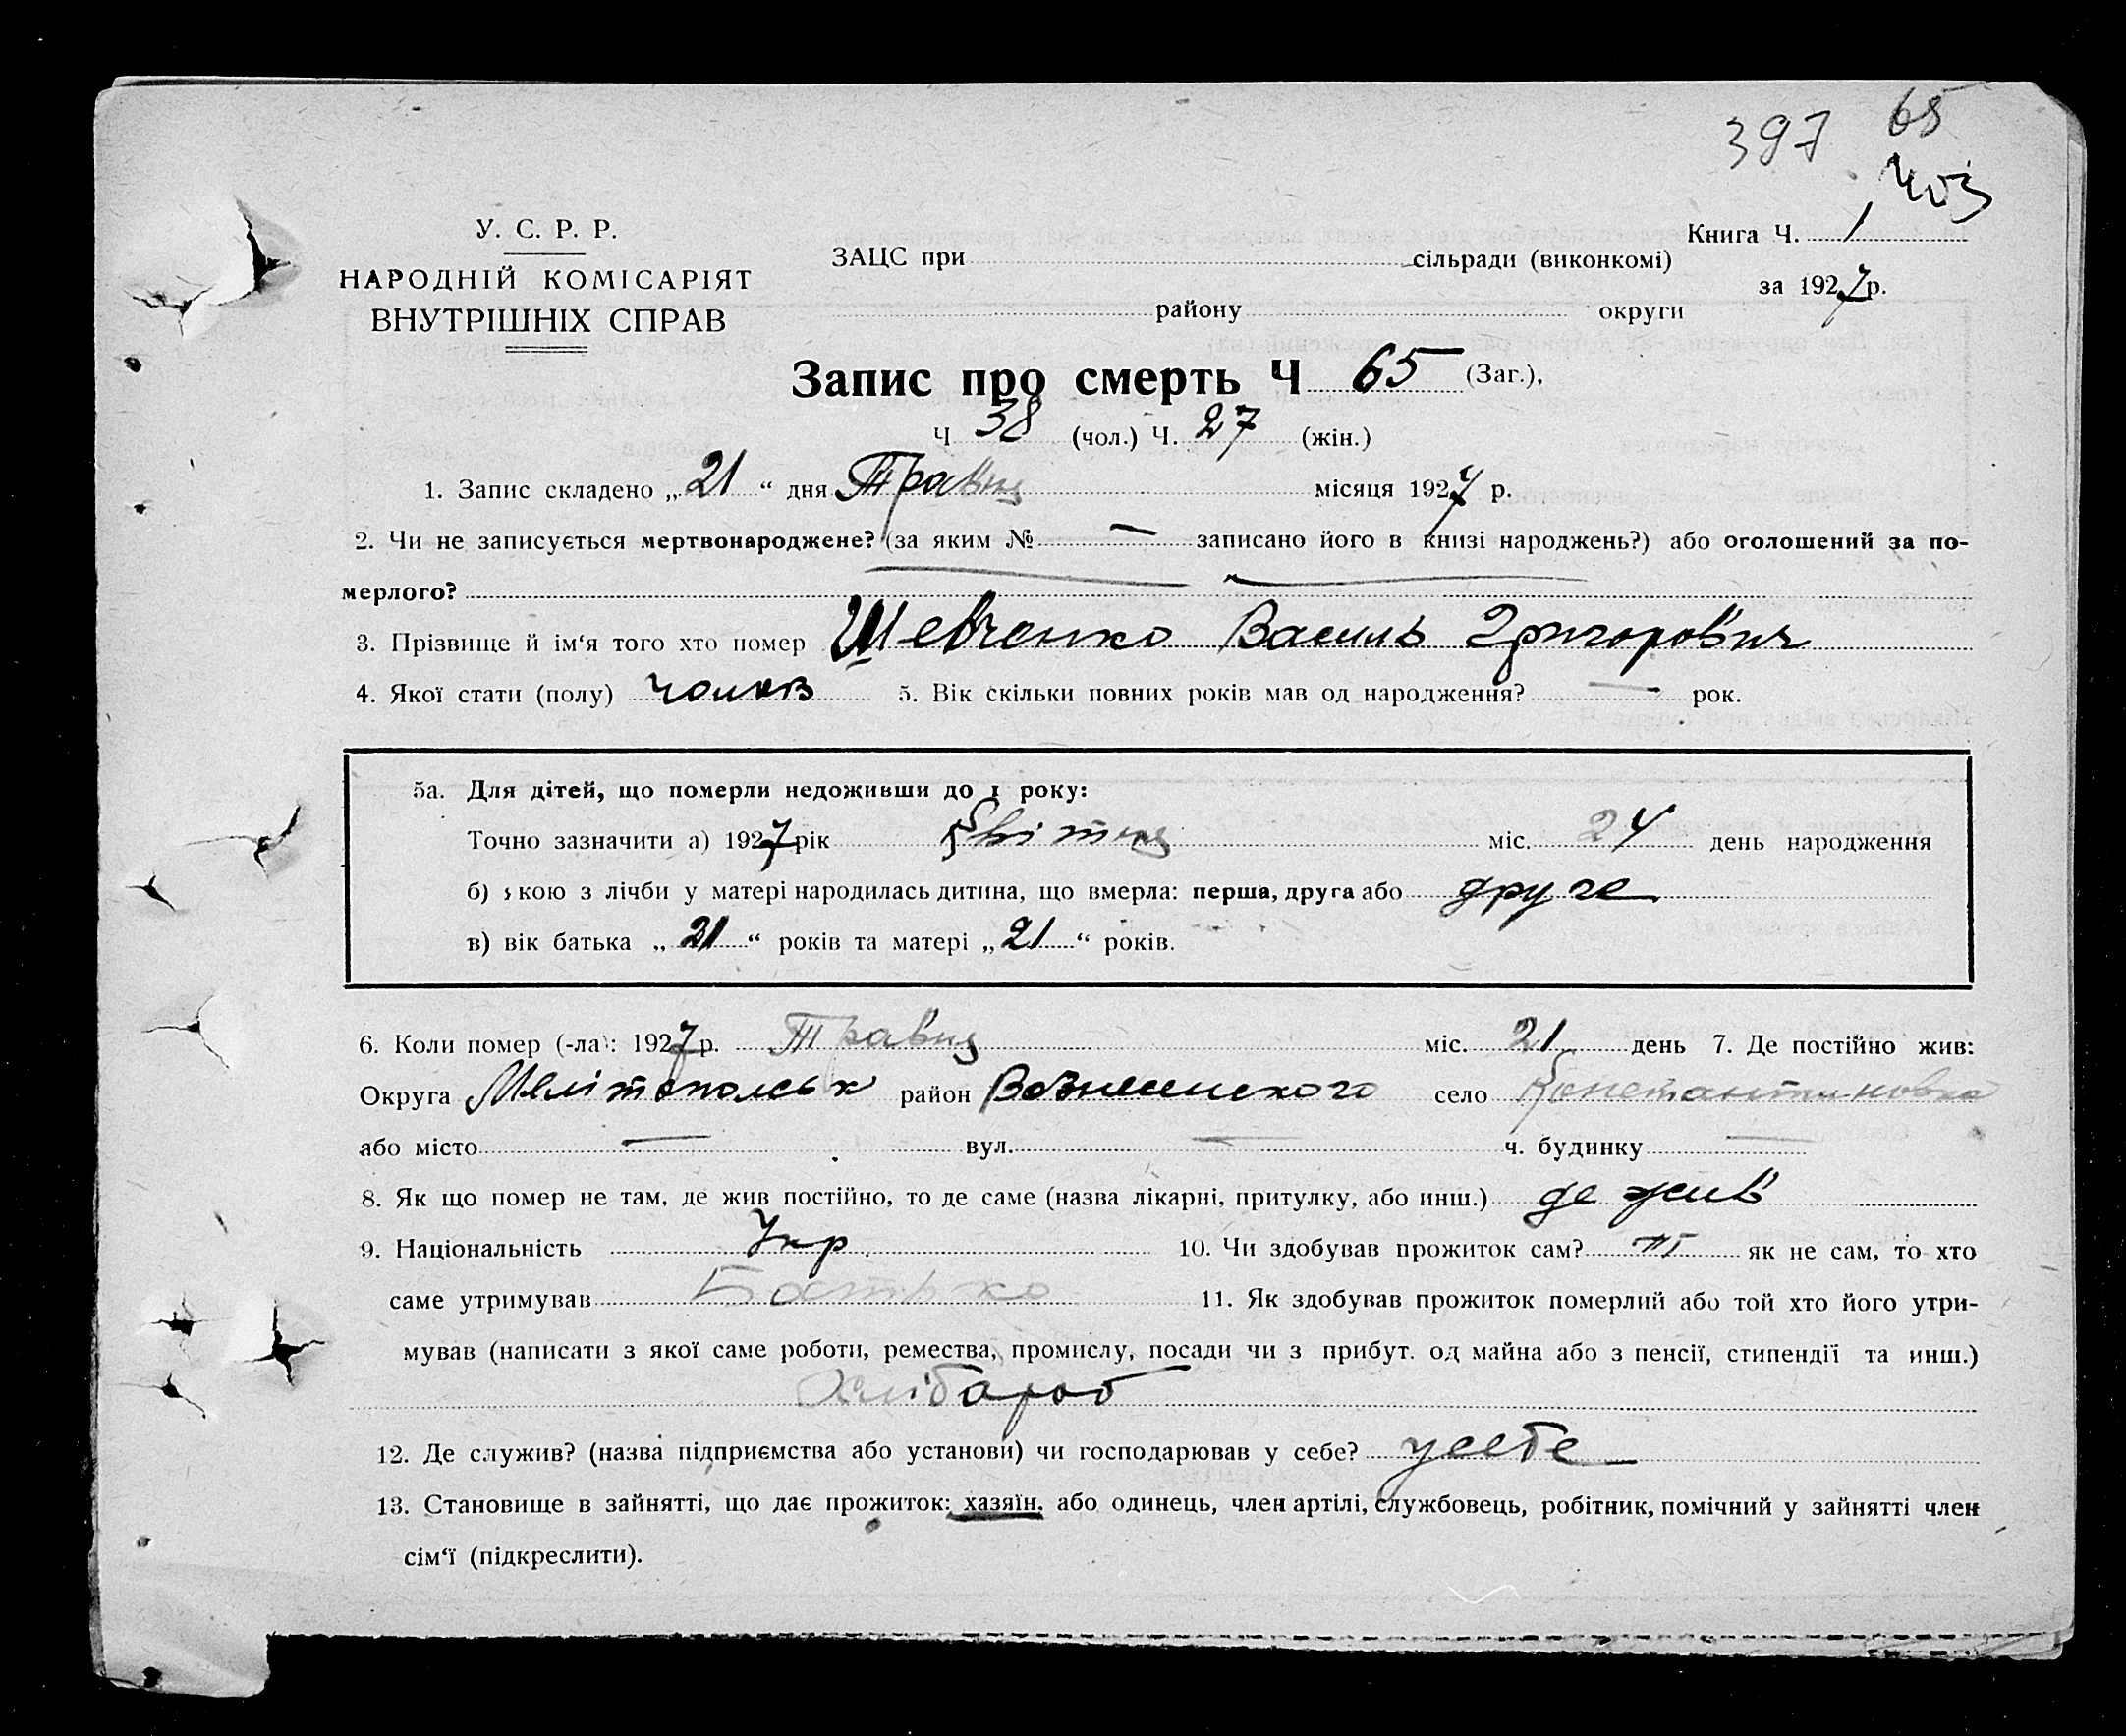 397 65
403
У. С. Р. Р.
НАРОДНІЙ КОМІСАРІЯТ
ВНУТРІШНІХ СПРАВ
ЗАЦС при сільради (виконкомі)
району округи
Книга Ч. 1
за 1927 р.
Запис про смерть Ч 65 (Заг.),
Ч 38 (чол.) Ч. 27 (жін.)
1. Запис складено „ 21 “ дня Травня місяця 1927 р.
2. Чи не записується мертвонароджене? (за яким № — записано його в книзі народжень?) або оголошений за по-
мерлого?
3. Прізвище й ім‘я того хто помер Шевченко Василь Григорович
4. Якої стати (полу) чолов 5. Вік скільки повних років мав од народження? — рок.
5а. Для дітей, що померли недоживши до 1 року:
Точно зазначити а) 1927 рік Квітня міс. 24 день народження
б) якою з лічби у матері народилась дитина, що вмерла: перша, друга або друге
в) вік батька „ 21 “ років та матері „ 21 “ років.
6. Коли помер (-ла): 1927 р. Травня міс. 21 день 7. Де постійно жив:
Округа Мелітопольськ район Вознесенского село Константиновка
або місто — вул. — ч. будинку —
8. Як що помер не там, де жив постійно, то де саме (назва лікарні, притулку, або инш.) де жив
9. Національність Укр. 10. Чи здобував прожиток сам? як не сам, то хто
саме утримував Батько 11. Як здобував прожиток померлий або той хто його утри-
мував (написати з якої саме роботи, ремества, промислу, посади чи з прибут. од майна або з пенсії, стипендії та инш.)
Хлібароб
12. Де служив? (назва підприємства або установи) чи господарював у себе? усебе
13. Становище в зайнятті, що дає прожиток: хазяїн, або одинець, член артілі, службовець, робітник, помічний у зайнятті член
сім‘ї (підкреслити).